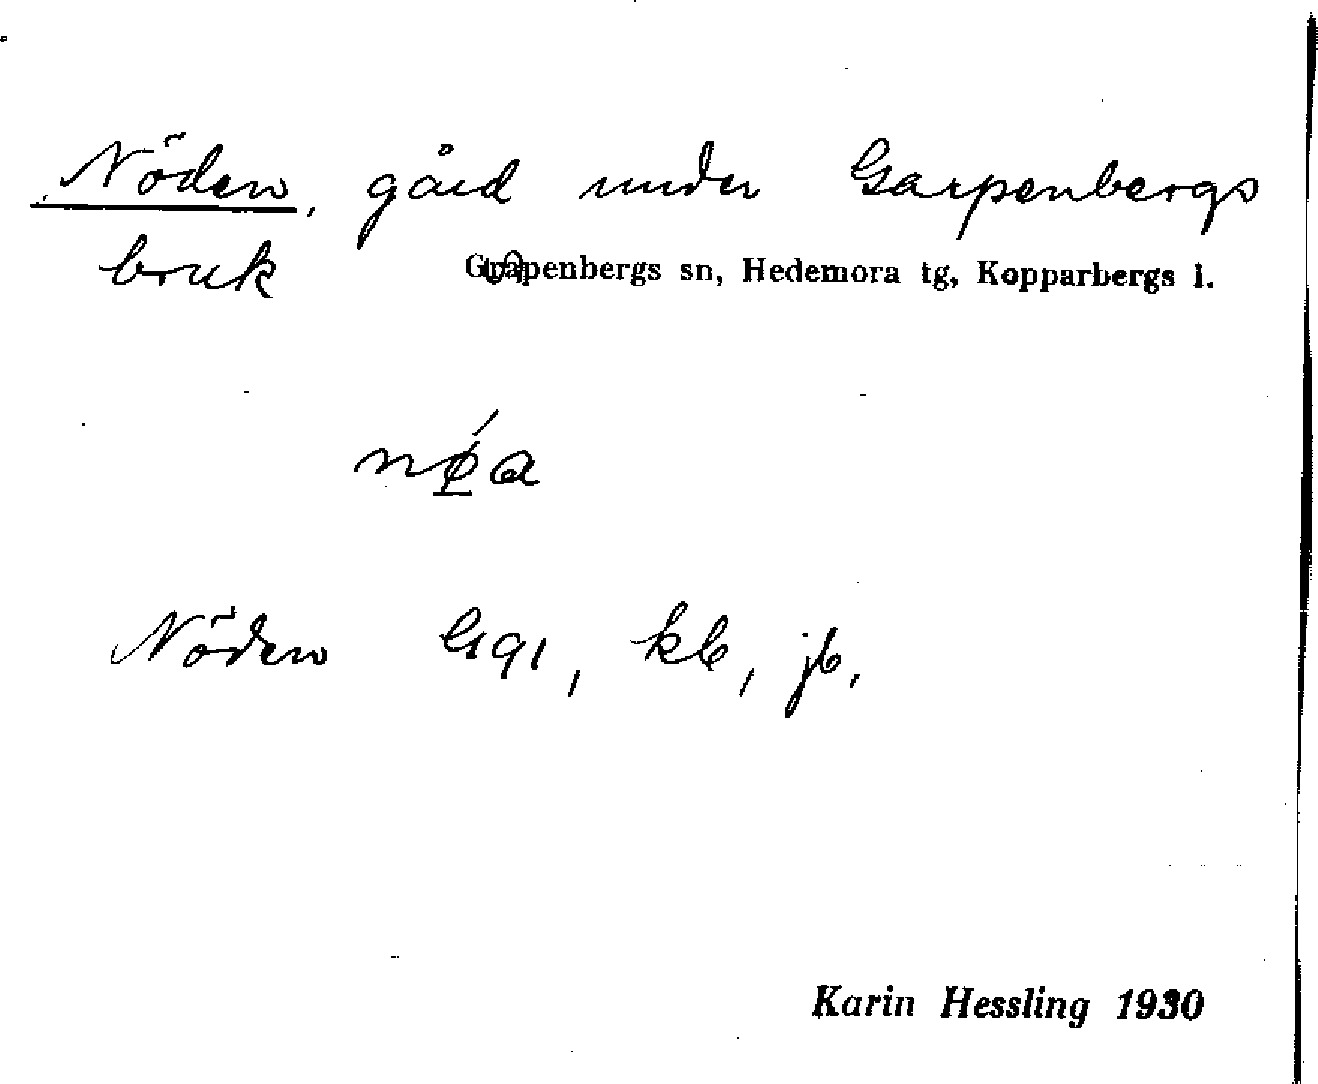 Nöden, gård under Garpenbergs
bruk Garpenbergs sn, Hedemora tg, Kopparbergs l.
nǿ̲a
Nöden kb, jb,
Karin Hessling 1930